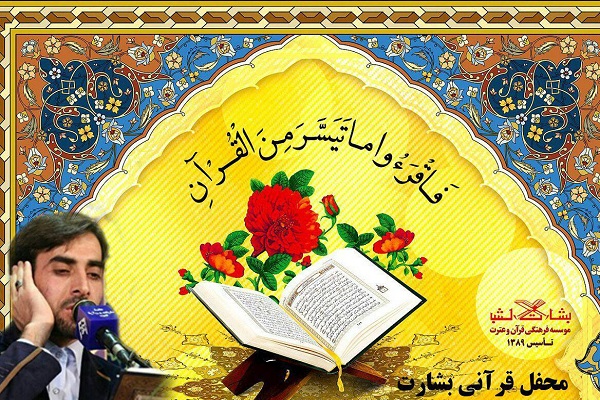 فَاقْرَءُوا مَا تَيَسَّرَ مِنَ الْقُرْآنِ
موسسه فرهنگی قرآن و عترت
تأسیس ۱۳۸۹
محفل قرآنی بشارت